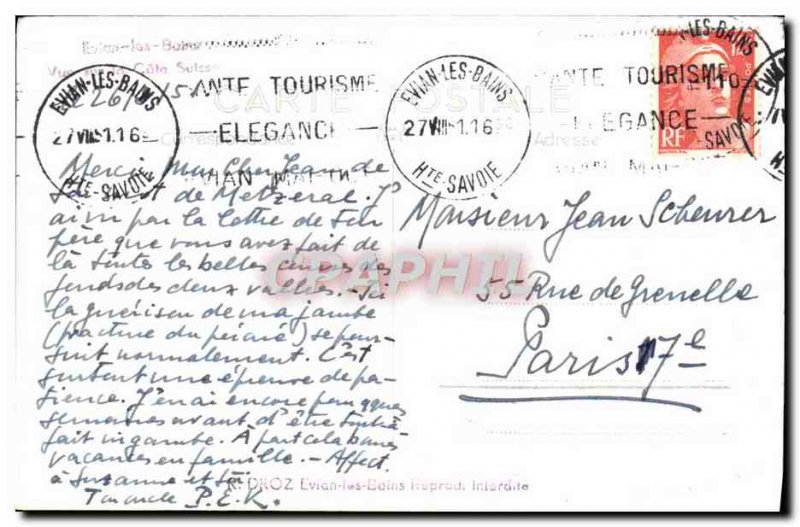 Evian-les-Bains
Côte Suisse
ANTE TOURISME
ELEGANCE
EVIAN-LES-BAINS
27 VIII
Hte SAVOIE
ANTE TOURISME
ELEGANCE
EVIAN-LES-BAINS
27 VIII
Hte SAVOIE
CARTE POSTALE
Correspondance
Adresse
RF
POSTES
Merci mon Cher Jean de
de Metzeral. J'
ai vu par la lettre de ton
père que vous avez fait de
là toutes les belles cimes des
fonds des deux vallées. - Ici
la guérison de ma jambe
(fracture du péroné) se pour-
suit normalement. C'est
surtout une épreuve de pa-
tience. J'en ai encore pour qques
semaines avant d'être tout à
fait ingambe. À part cela bonnes
vacances en famille. - Affect.
à Suzanne et toi
Ton oncle P.E.K.
Monsieur Jean Scheurer
55 Rue de Grenelle
Paris 7e
CPAPHIL
R. DROZ Evian-les-Bains Reprod. Interdite